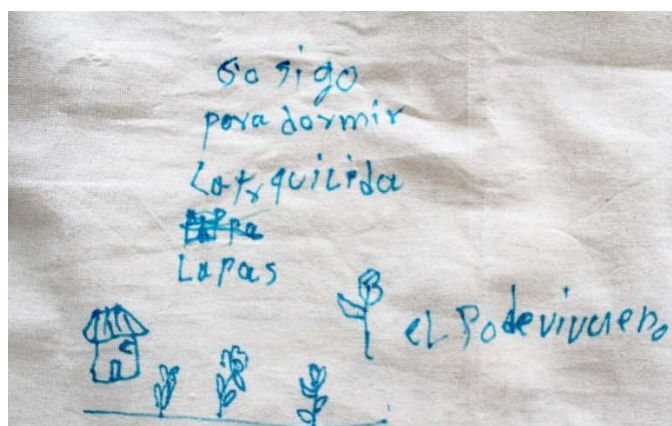 So sigo
para dormir
Latrquilida
Lapas
eL Podevivueno